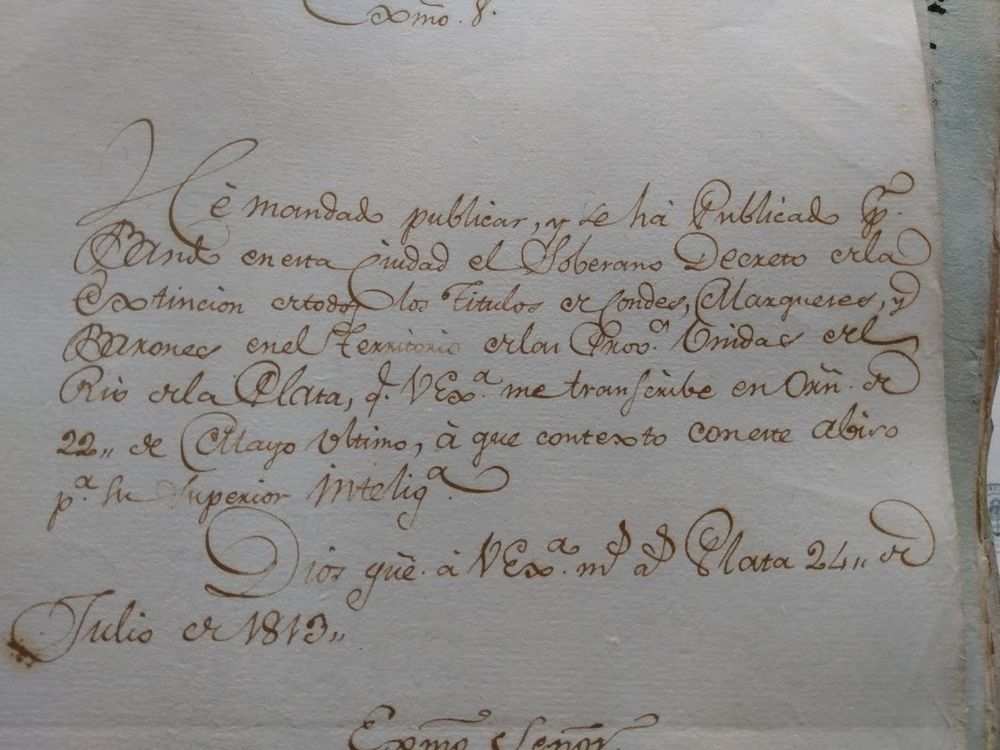 Exmo. S.
Hè mandado publicar, y se há Publicado pr.
Bando en esta Ciudad el Soberano Decreto de la
Extincion de todos los Titulos de Condes, Marqueses, y
Barones en el Territorio de las Provs. Unidas del
Rio de la Plata, q. VExa. me transcribe en Orñ. de
22,, de Mayo Ultimo, à que contexto con este abiso
pa. su Superior Inteliga.
Dios güe. à VExa. ms. as. Plata 24,, de
Julio de 1813,,
Exmo. Señor.